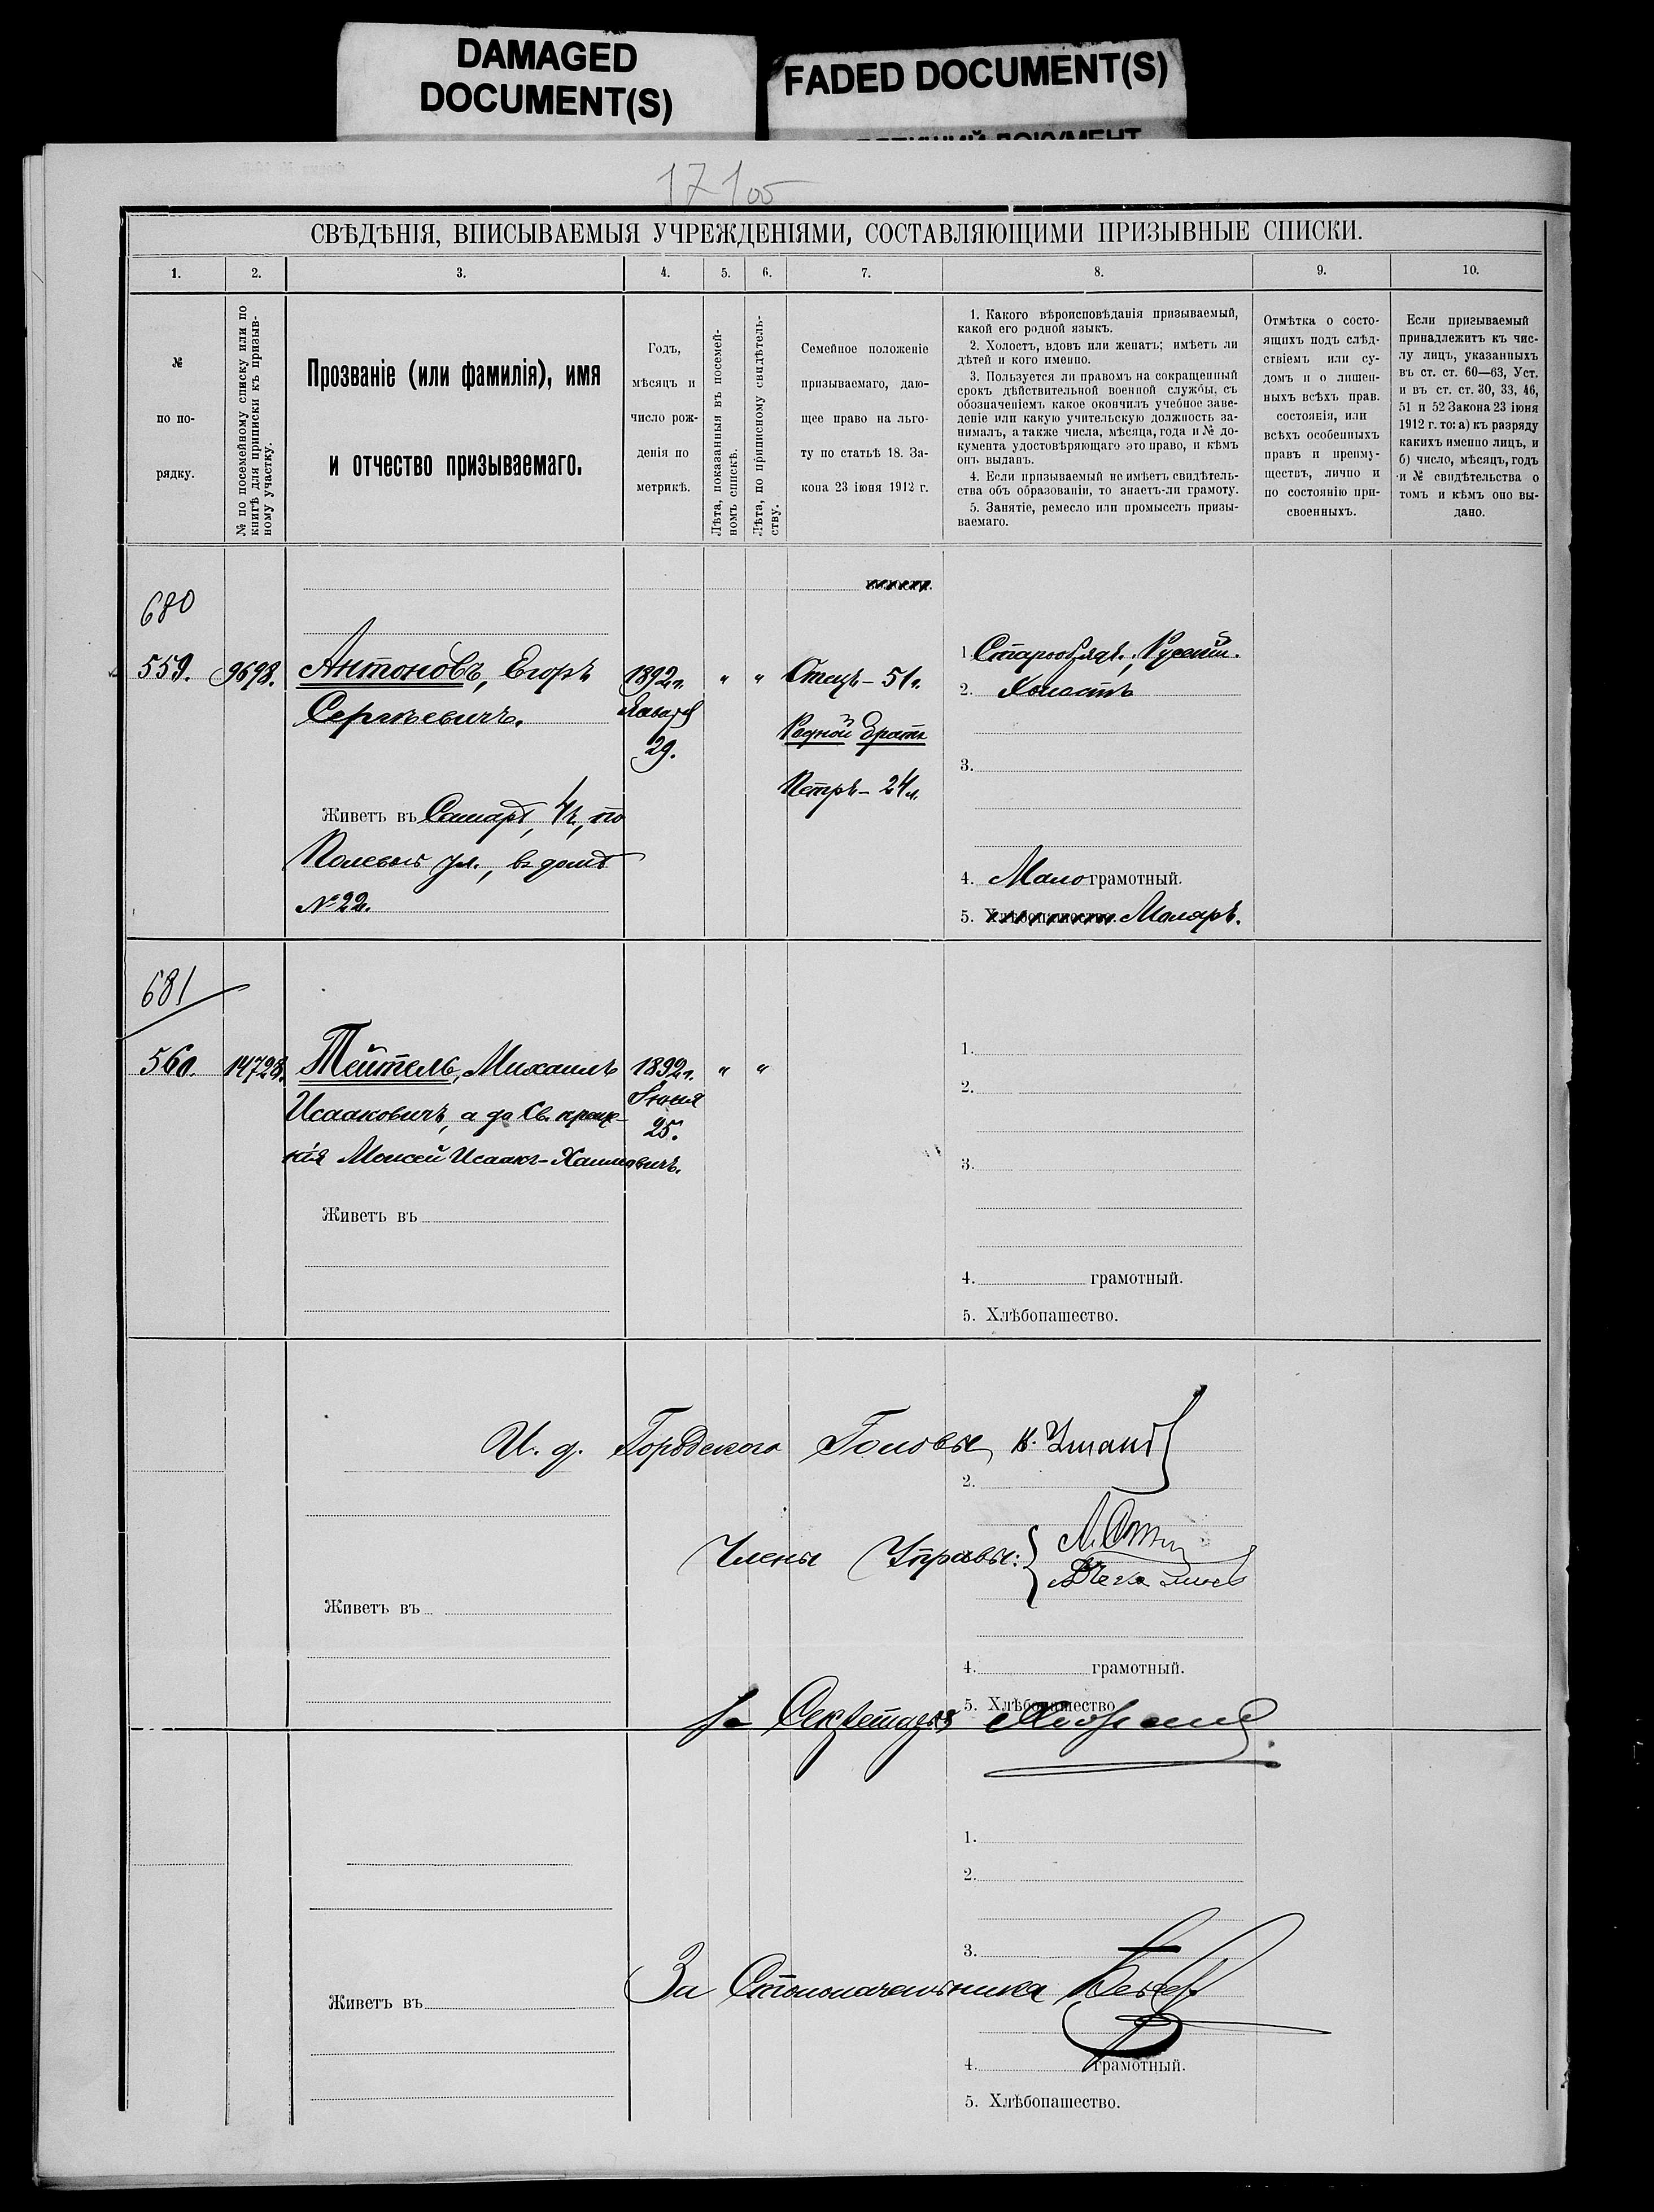 DAMAGED
DOCUMENT(S)
FADED DOCUMENT(S)
17 100
СВѢДѢНІЯ, ВПИСЫВАЕМЫЯ УЧРЕЖДЕНІЯМИ, СОСТАВЛЯЮЩИМИ ПРИЗЫВНЫЕ СПИСКИ.
1. 2. 3. 4. 5. 6. 7. 8. 9. 10.
№
по по-
рядку.
№ по посемейному списку или по
книгѣ для приписки къ призыв-
ному участку.
Прозваніе (или фамилія), имя
и отчество призываемаго.
Годъ,
мѣсяцъ и
число рож-
денія по
метрикѣ.
Лѣта, показанныя въ посемей-
номъ спискѣ.
Лѣта, по приписному свидѣтель-
ству.
Семейное положеніе
призываемаго, даю-
щее право на льго-
ту по статьѣ 18. За-
кона 23 іюня 1912 г.
1. Какого вѣроисповѣданія призываемый,
какой его родной языкъ.
2. Холостъ, вдовъ или женатъ; имѣетъ ли
дѣтей и кого именно.
3. Пользуется ли правомъ на сокращенный
срокъ дѣйствительной военной службы, съ
обозначеніемъ какое окончилъ учебное заве-
деніе или какую учительскую должность за-
нималъ, а также числа, мѣсяца, года и № до-
кумента удостовѣряющаго это право, и кѣмъ
онъ выданъ.
4. Если призываемый не имѣетъ свидѣтель-
ства объ образованіи, то знаетъ-ли грамоту.
5. Занятіе, ремесло или промыселъ призы-
ваемаго.
Отмѣтка о состо-
ящихъ подъ слѣд-
ствіемъ или су-
домъ и о лишен-
ныхъ всѣхъ прав.
состоянія, или
всѣхъ особенныхъ
правъ и преиму-
ществъ, лично и
по состоянію при-
своенныхъ.
Если призываемый
принадлежитъ къ чис-
лу лицъ, указанныхъ
въ ст. ст. 60—63, Уст.
и въ ст. ст. 30, 33, 46,
51 и 52 Закона 23 іюня
1912 г. то: а) къ разряду
какихъ именно лицъ, и
б) число, мѣсяцъ, годъ
и № свидѣтельства о
томъ и кѣмъ оно вы-
дано.
680
559. 9698. Антоновъ, Егоръ
Сергѣевичъ.
Живетъ въ Самарѣ, 4 ч., по
Полевой ул., въ домѣ
№ 22.
1892 г.
Января
29.
" "
Отецъ – 51 г.
Родной братъ
Петръ – 24 л.
1. Старообрядч., Русскій.
2. Холостъ
3.
4. Мало грамотный.
5. Хлѣбопашество. Маляръ.
681
560. 14728. Тейтель, Михаилъ
Исааковичъ, а до Св. креще-
нія Моисей Исаакъ-Хаимовичъ.
Живетъ въ
1892 г.
Іюня
25.
" "
1.
2.
3.
4. грамотный.
5. Хлѣбопашество.
И. д. Городского Головы
2.
Члены Управы:
Живетъ въ
4. грамотный.
5. Хлѣбопашество
За Секретаря
1.
2.
3.
За Столоначальника
Живетъ въ
4. грамотный.
5. Хлѣбопашество.